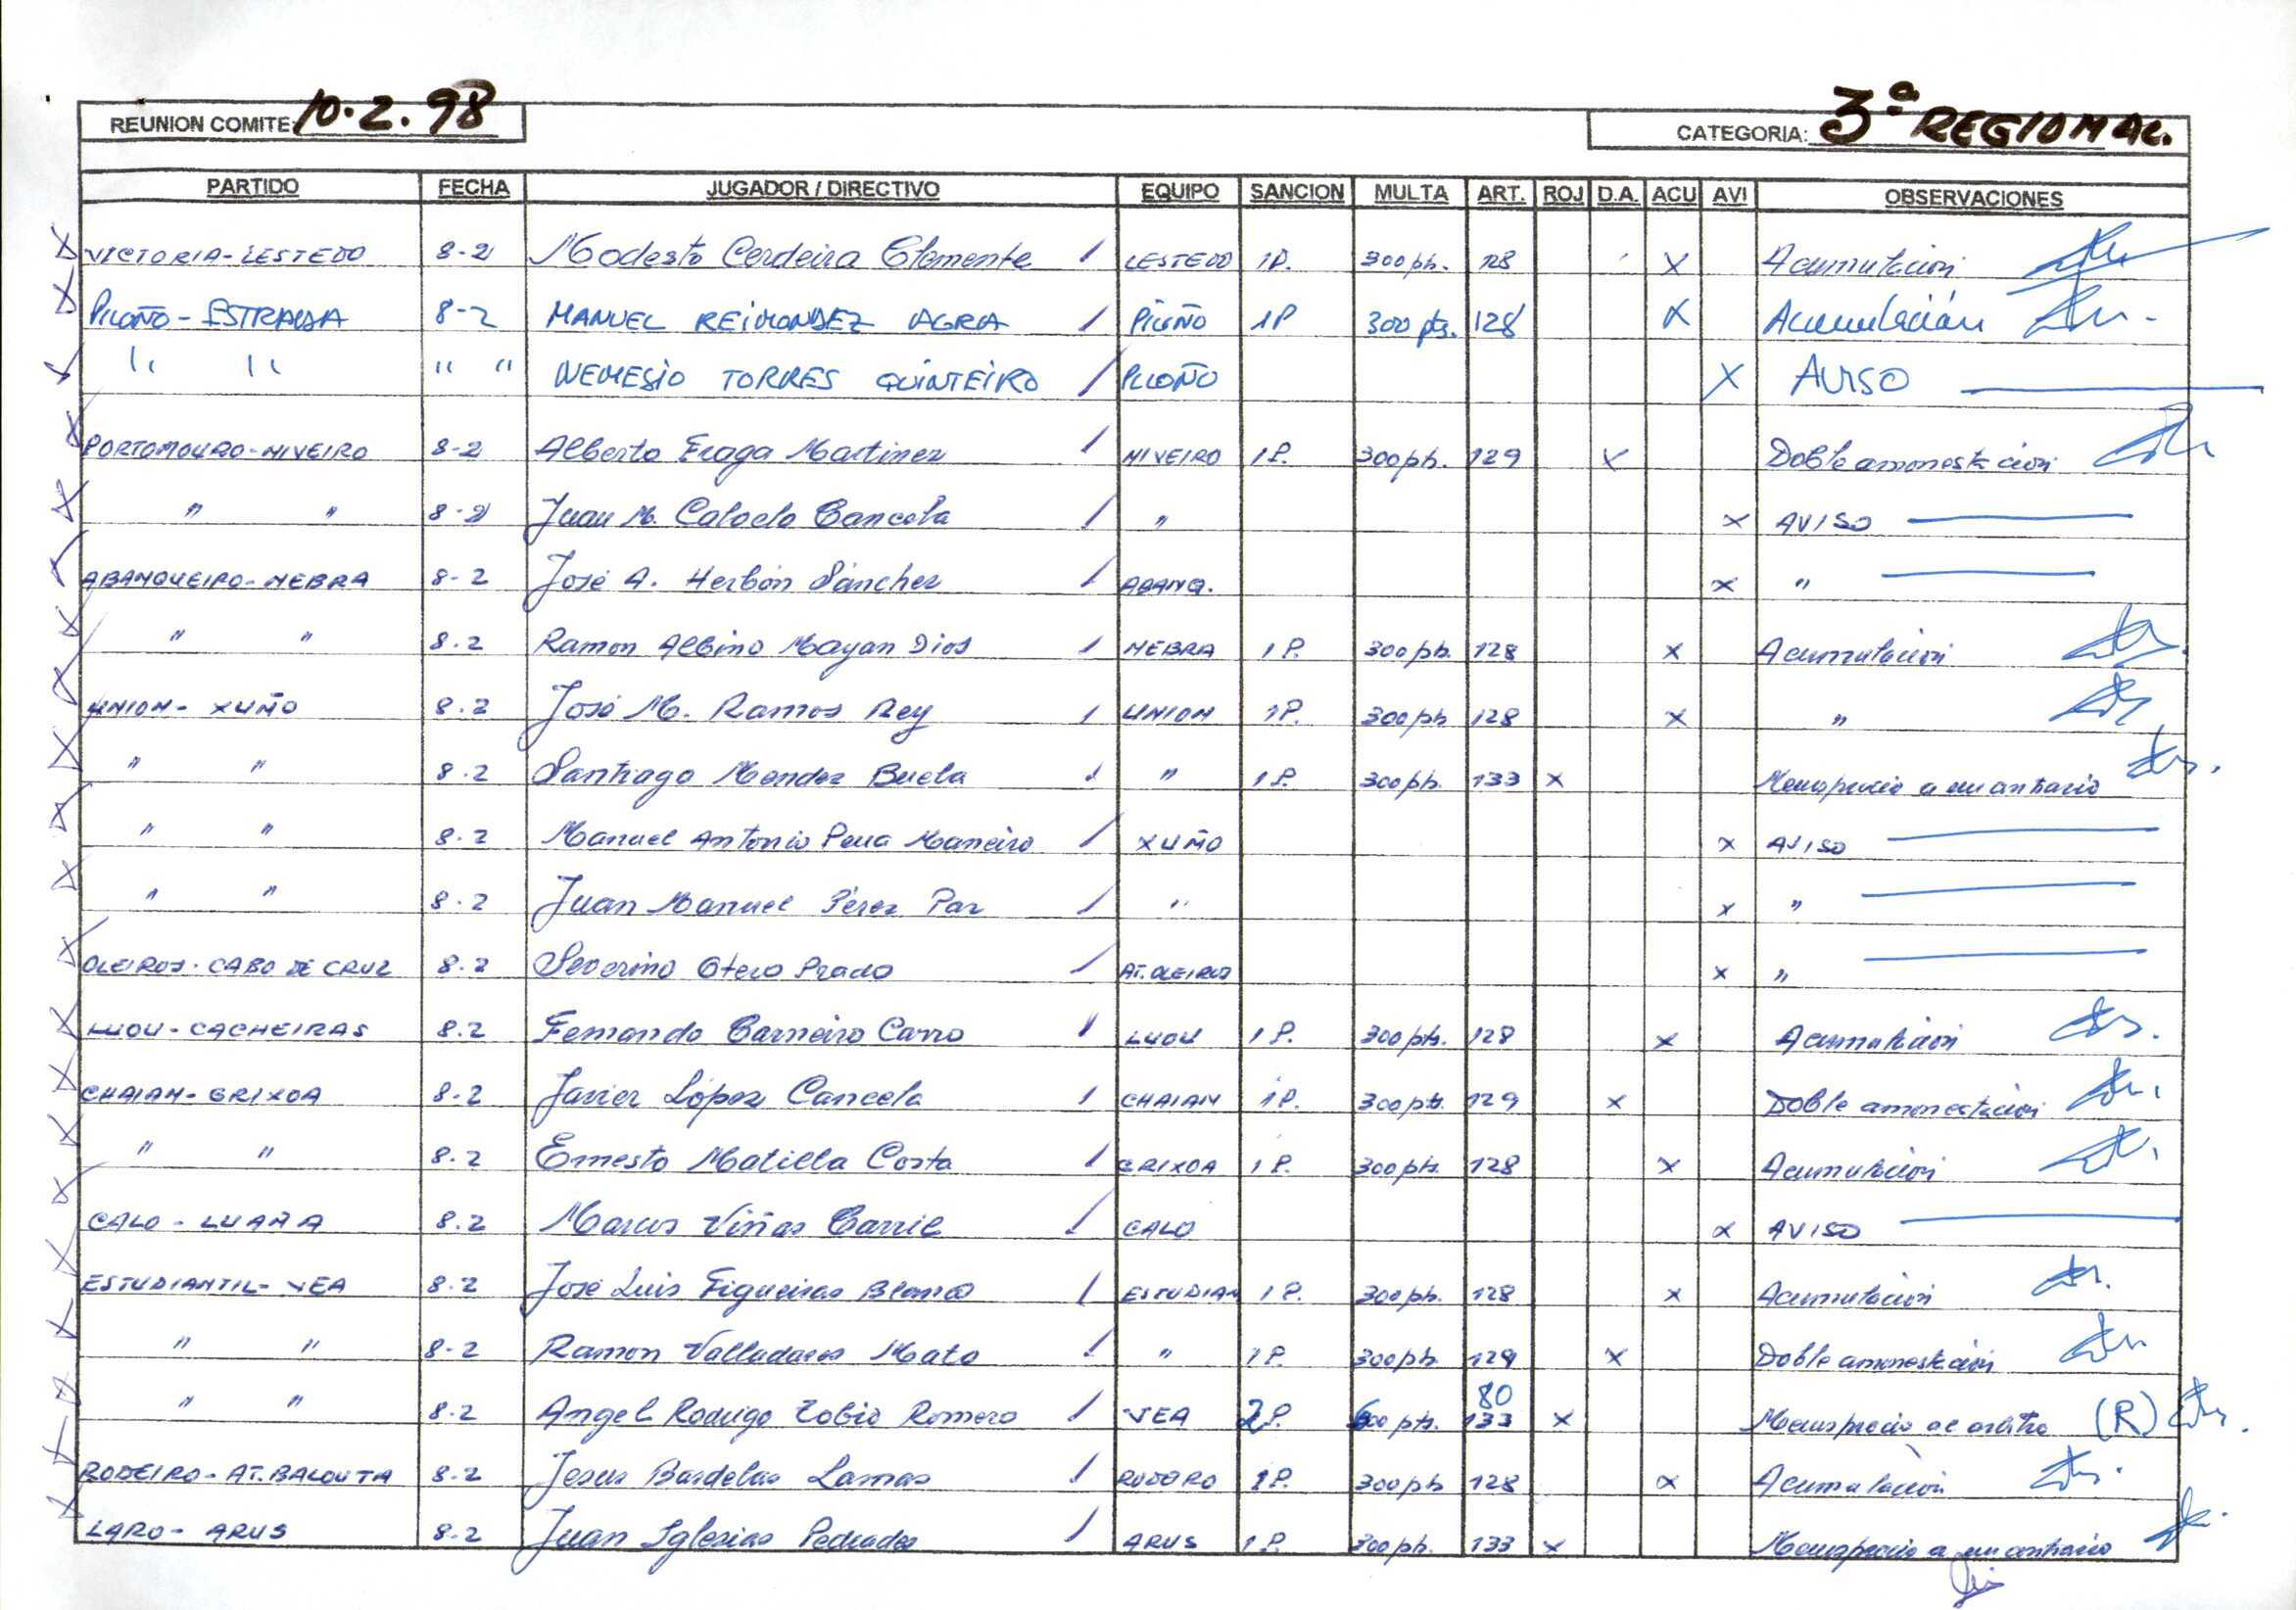 REUNION COMITE: 10.2.98 CATEGORIA: 3ª REGIONAL.
PARTIDO FECHA JUGADOR / DIRECTIVO EQUIPO SANCION MULTA ART. ROJ D.A. ACU AVI OBSERVACIONES
VICTORIA-LESTEDO 8-2 Modesto Cerdeira Clemente / LESTEDO 1P. 300 pts. 128 X Acumulación
PILOÑO - ESTRADA 8-2 MANUEL REIMONDEZ AGRA / PILOÑO 1P 300 pts. 128 X Acumulación
" " " " NEMESIO TORRES QUINTEIRO / PILOÑO X AVISO
PORTOMOURO-NIVEIRO 8-2 Alberto Fraga Martinez / NIVEIRO 1P. 300 pts. 129 X Doble amonestación
" " 8-2 Juan M. Calvelo Cancela / " X AVISO
ABANQUEIRO-NEBRA 8-2 José A. Herbón Sánchez / ABANQ. X "
" " 8.2 Ramon Albino Mayan Dios / NEBRA 1P. 300 pts. 128 X Acumulación
UNION - XUÑO 8.2 José M. Ramos Rey / UNION 1P. 300 pts 128 X "
" " 8.2 Santiago Mendez Buela / " 1P. 300 pts. 133 X Menosprecio a un contrario
" " 8.2 Manuel Antonio Pena Maneiro / XUÑO X AVISO
" " 8.2 Juan Manuel Pérez Paz / " X "
OLEIROS-CABO DE CRUZ 8.2 Severino Otero Prado / AT. OLEIROS X "
LUOU - CACHEIRAS 8.2 Fernando Carneiro Carro / LUOU 1P. 300 pts. 128 X Acumulación
CHAIAN-GRIXOA 8.2 Javier López Cancela / CHAIAN 1P. 300 pts. 129 X Doble amonestación
" " 8.2 Ernesto Matilla Costa / GRIXOA 1P. 300 pts. 128 X Acumulación
CALO - LUAÑA 8.2 Marcos Viñas Carril / CALO X AVISO
ESTUDIANTIL-VEA 8.2 José Luis Figueiras Blanco / ESTUDIAN 1P. 300 pts. 128 X Acumulación
" " 8-2 Ramon Valladares Mato / " 1P. 300 pts. 129 X Doble amonestación
" " 8.2 Angel Rodrigo Tobio Romero / VEA 2P. 600 pts. 80 133 X Menosprecio al arbitro (R)
RODEIRO-AT. BALOUTA 8-2 Jesus Bardelas Lamas / RODEIRO 1P. 300 pts 128 X Acumulación
LARO - ARUS 8-2 Juan Iglesias / ARUS 1P. 300 pts. 133 X Menosprecio a un contrario